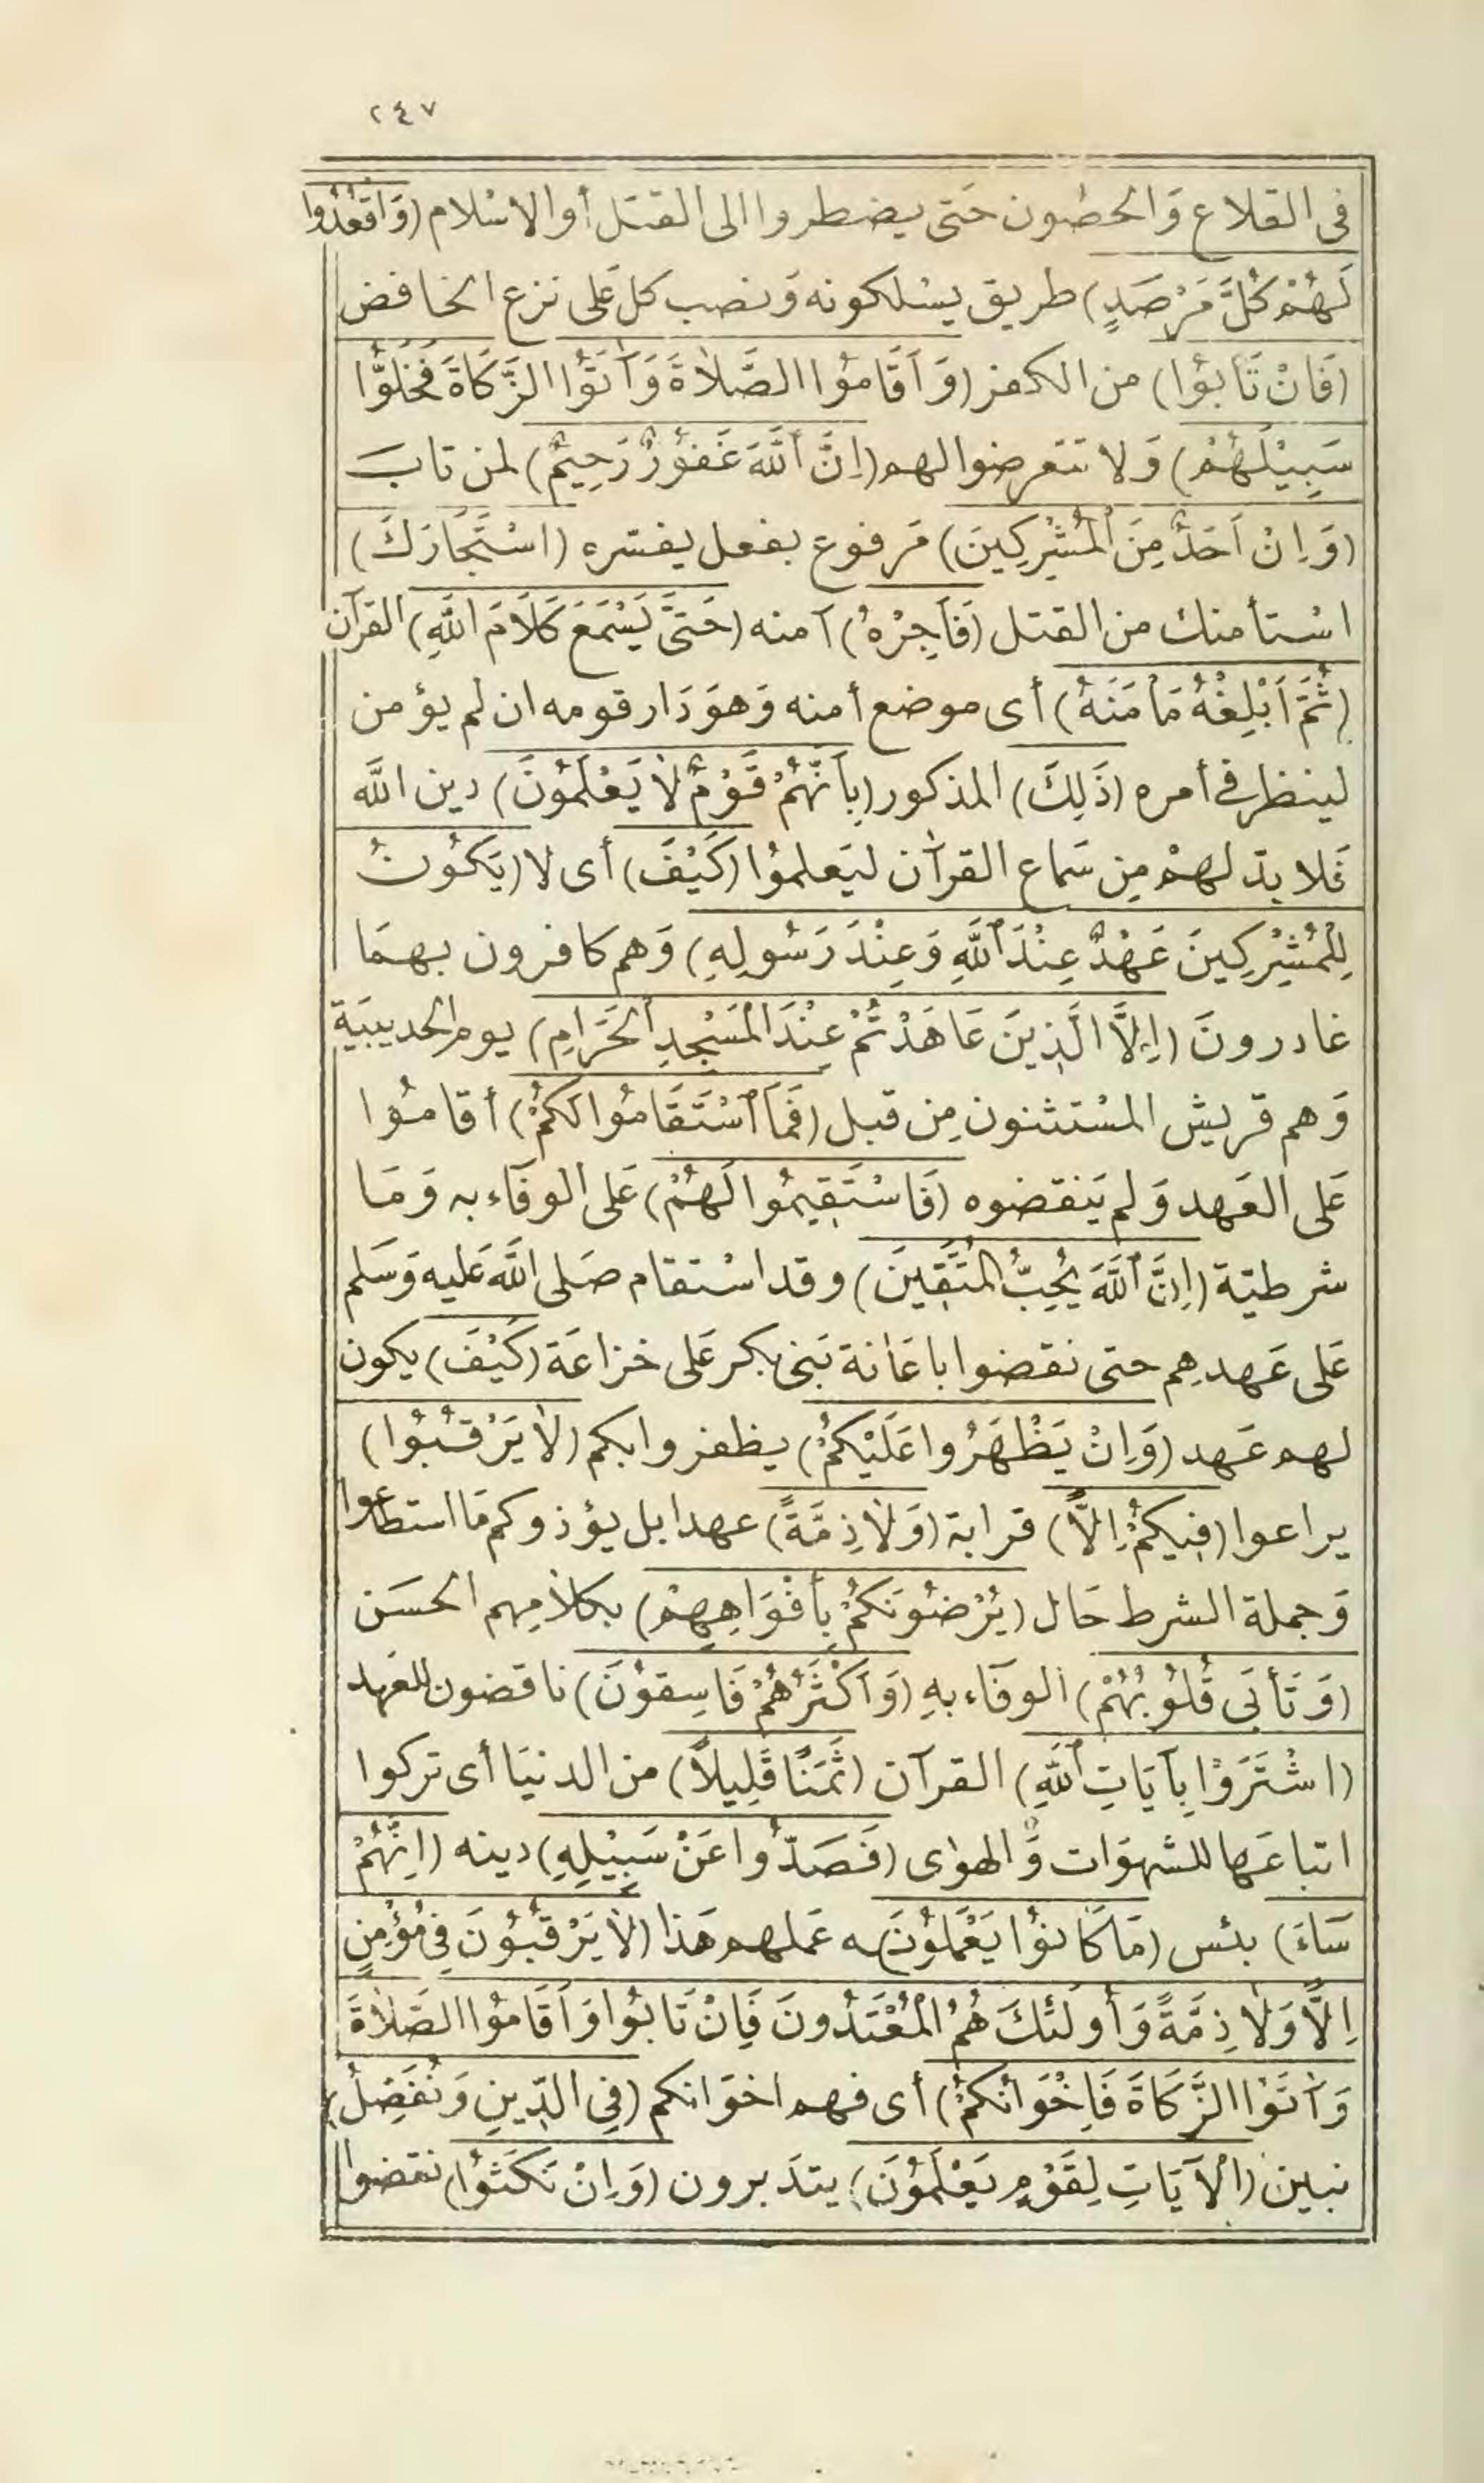 ٢٤٧
فى القلاع وَالحصون حَتى يضطروا الى القتل أو الاسْلام (وَاقْعُدُوا
لَهُمْ كُلَّ مَرْصَدٍ) طريق يسْلكونه وَنصب كل عَلى نزع الخافض
(فَانْ تَابُوْا) من الكفر (وَأَقَامُوْا الصَّلَاةَ وَآتَوُا الزَّكَاةَ فَخَلُّوْا
سَبِيْلَهُمْ) وَلا تتعرضوا لهم (اِنَّ ٱللَّهَ غَفُوْرٌ رَحِيمٌ) لمن تابَ
(وَاِنْ اَحَدٌ مِنَ ٱلْمُشْرِكِينَ) مَرفوع بفعل يفسّره (اسْتَجَارَكَ)
اسْتأمنك من القتل (فَأَجِرْهُ) آمنه (حَتَّىٰ يَسْمَعَ كَلَامَ اللَّهِ) القرآن
(ثُمَّ اَبْلِغْهُ مَأمَنَهُ) أى موضع أمنه وَهوَ دَار قومه ان لم يؤمن
لينظر فى أمره (ذَلِكَ) المذكور (بِأَنَّهُمْ قَوْمٌ لَا يَعْلَمُونَ) دين اللَّه
فَلا بدّ لهمْ مِن سَماع القرآن ليَعلمُوْا (كَيْفَ) أى لا (يَكُونُ
لِلْمُشْرِكِينَ عَهْدٌ عِنْدَ ٱللَّهِ وَعِنْدَ رَسُولِهِ) وَهم كافرون بهمَا
غادرونَ (اِلَّا الَّذِينَ عَاهَدْتُمْ عِنْدَ الْمَسْجِدِ ٱلحَرَامِ) يوم الحديبيَة
وَهم قريش المسْتثنون مِن قبل (فَمَا ٱسْتَقَامُوا لَكُمْ) أقامُوا
عَلى العَهد وَلم يَنقضوه (فَاسْتَقِيمُوا لَهُمْ) عَلى الوفَاء به وَمَا
شرطيّة (اِنَّ ٱللَّهَ يُحِبُّ المُتَّقِينَ) وقد اسْتقام صَلى اللَّه عَليه وَسَلم
عَلى عَهدهِم حتى نقضوا باعَانة بَنى بكر عَلى خزاعَة (كَيْفَ) يكون
لهم عَهد (وَاِنْ يَظْهَرُوا عَلَيْكُمْ) يظفروا بكم (لَا يَرْقُبُوا)
يراعوا (فِيكُمْ اِلًّا) قرابة (وَلَا ذِمَّةً) عهدا بل يؤذوكم مَا استطاعوا
وَجملة الشرط حَال (يُرْضُونَكُمْ بِأَفْوَاهِهِمْ) بكلامِهم الحسَن
(وَتَأبَى قُلُوبُهُمْ) الوفَاء بهِ (وَاَكْثَرُهُمْ فَاسِقُوْنَ) ناقضون للعَهد
(اشْتَرَوْا بِآيَاتِ ٱللَّهِ) القرآن (ثَمَنًا قَلِيلًا) من الدنيَا أى تركوا
اتباعَها للشهوَات وَالهوٰى (فَصَدُّوا عَنْ سَبِيْلِهِ) دينه (اِنَّهُمْ
سَاءَ) بئس (مَا كَانُوْا يَعْمَلُوْنَ) ـه عَملهم هَذا (لَا يَرْقُبُوْنَ فِى مُؤْمِنٍ
اِلًّا وَلَا ذِمَّةً وَأُولَئكَ هُمُ الْمُعْتَدُونَ فَاِنْ تَابُوا وَاَقَامُوْا الصَّلَاةَ
وَآتَوْا الزَّكَاةَ فَاِخْوَانُكُمْ) أى فهم اخوَانكم (فِى الدِّينِ وَنُفَصِّلُ)
نبين (الْآيَاتِ لِقَوْمٍ يَعْلَمُوْنَ) يتدَبرون (وَاِنْ نَكَثُوْا) نقضوا